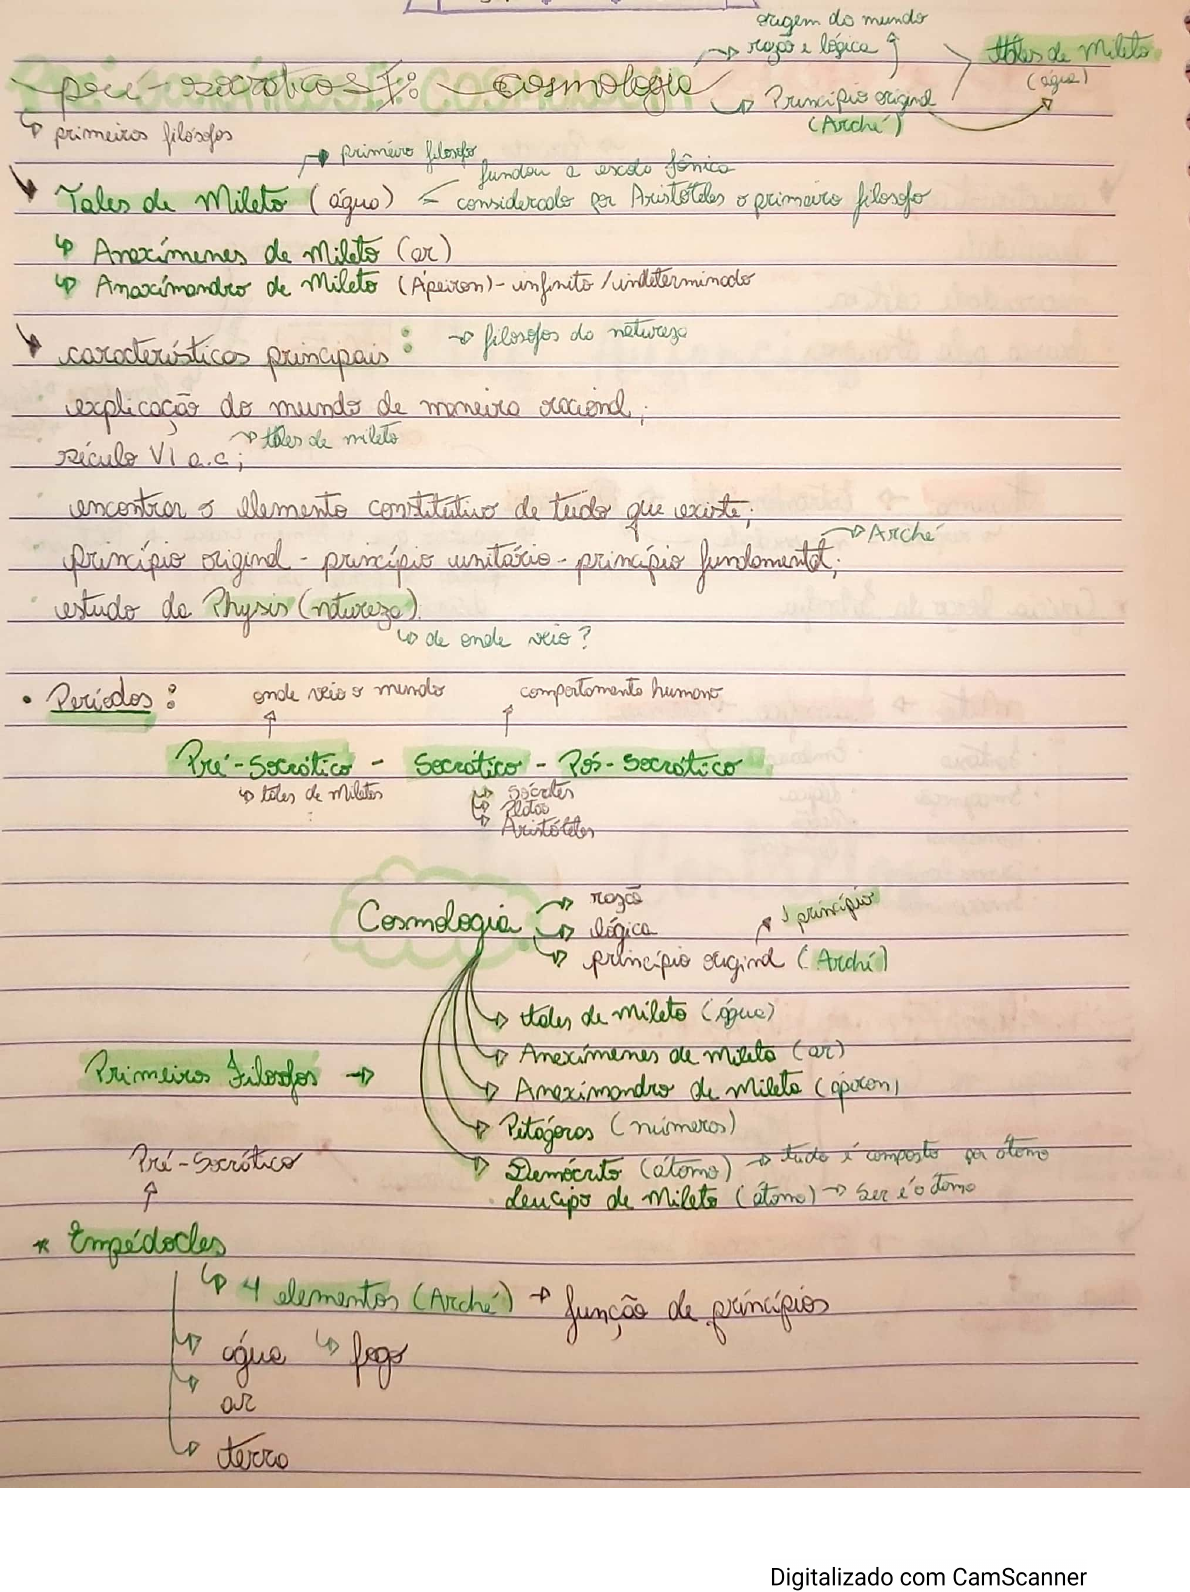 origem do mundo
razão e lógica
Tales de Mileto
(água)
pré-socráticos: Cosmologia
Princípio original
(Arché)
primeiros filósofos
primeiro filósofo
fundou a escola Jônica
Tales de Mileto (água) considerado por Aristóteles o primeiro filósofo
Anaxímenes de Mileto (ar)
Anaximandro de Mileto (Ápeiron) - infinito/indeterminado
características principais: filósofos da natureza
explicação do mundo de maneira racional;
Tales de mileto
século VI a.c;
encontrar o elemento constitutivo de tudo que existe;
Arché
princípio original - princípio unitário - princípio fundamental;
estudo da Physis (natureza).
de onde veio?
• Períodos: onde veio o mundo comportamento humano
Pré-Socrático - Socrático - Pós-Socrático
tales de Miletos Sócrates
Platão
Aristóteles
razão
Cosmologia 1 princípio
lógica
princípio original (Arché)
tales de mileto (água)
Anaxímenes de mileto (ar)
Primeiros Filósofos
Anaximandro de Mileto (ápeiron)
Pitágoras (números)
Pré-Socrático
Demócrito (átomo) tudo é composto por átomo
Leucipo de Mileto (átomo) Ser é o átomo
* Empédocles
4 elementos (Arché) função de princípios
água fogo
ar
terra
Digitalizado com CamScanner